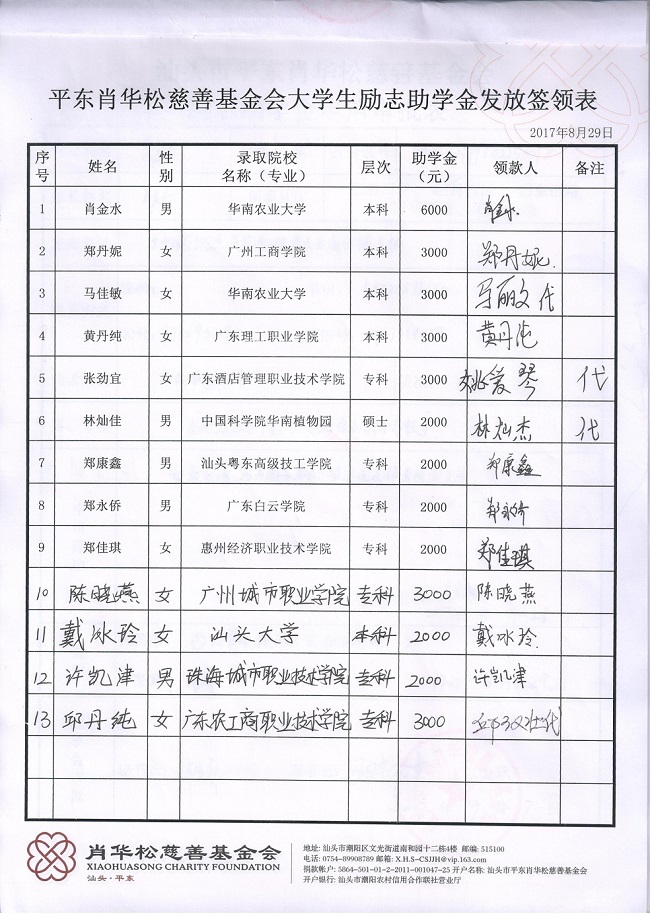 平东肖华松慈善基金会大学生励志助学金发放签领表
2017年8月29日
序号 姓名 性别 录取院校名称（专业） 层次 助学金（元） 领款人 备注
1 肖金水 男 华南农业大学 本科 6000 肖金水
2 郑丹妮 女 广州工商学院 本科 3000 郑丹妮
3 马佳敏 女 华南农业大学 本科 3000 马丽文代
4 黄丹纯 女 广东理工职业学院 本科 3000 黄丹纯
5 张劲宜 女 广东酒店管理职业技术学院 专科 3000 姚爱琴 代
6 林灿佳 男 中国科学院华南植物园 硕士 2000 林灿杰 代
7 郑康鑫 男 汕头粤东高级技工学院 专科 2000 郑康鑫
8 郑永侨 男 广东白云学院 专科 2000 郑永侨
9 郑佳琪 女 惠州经济职业技术学院 专科 2000 郑佳琪
10 陈晓燕 女 广州城市职业学院 专科 3000 陈晓燕
11 戴冰玲 女 汕头大学 本科 2000 戴冰玲
12 许凯津 男 珠海城市职业技术学院 专科 2000 许凯津
13 邱丹纯 女 广东农工商职业技术学院 专科 3000
肖华松慈善基金会
XIAOHUASONG CHARITY FOUNDATION
汕头·平东
地址: 汕头市潮阳区文光街道南和园十二栋4楼 邮编: 515100
电话: 0754-89908789 邮箱: X.H.S-CSJJH@vip.163.com
捐款帐户: 5864-501-01-2-2011-001047-25 开户名称: 汕头市平东肖华松慈善基金会
开户银行: 汕头市潮阳农村信用合作联社营业厅